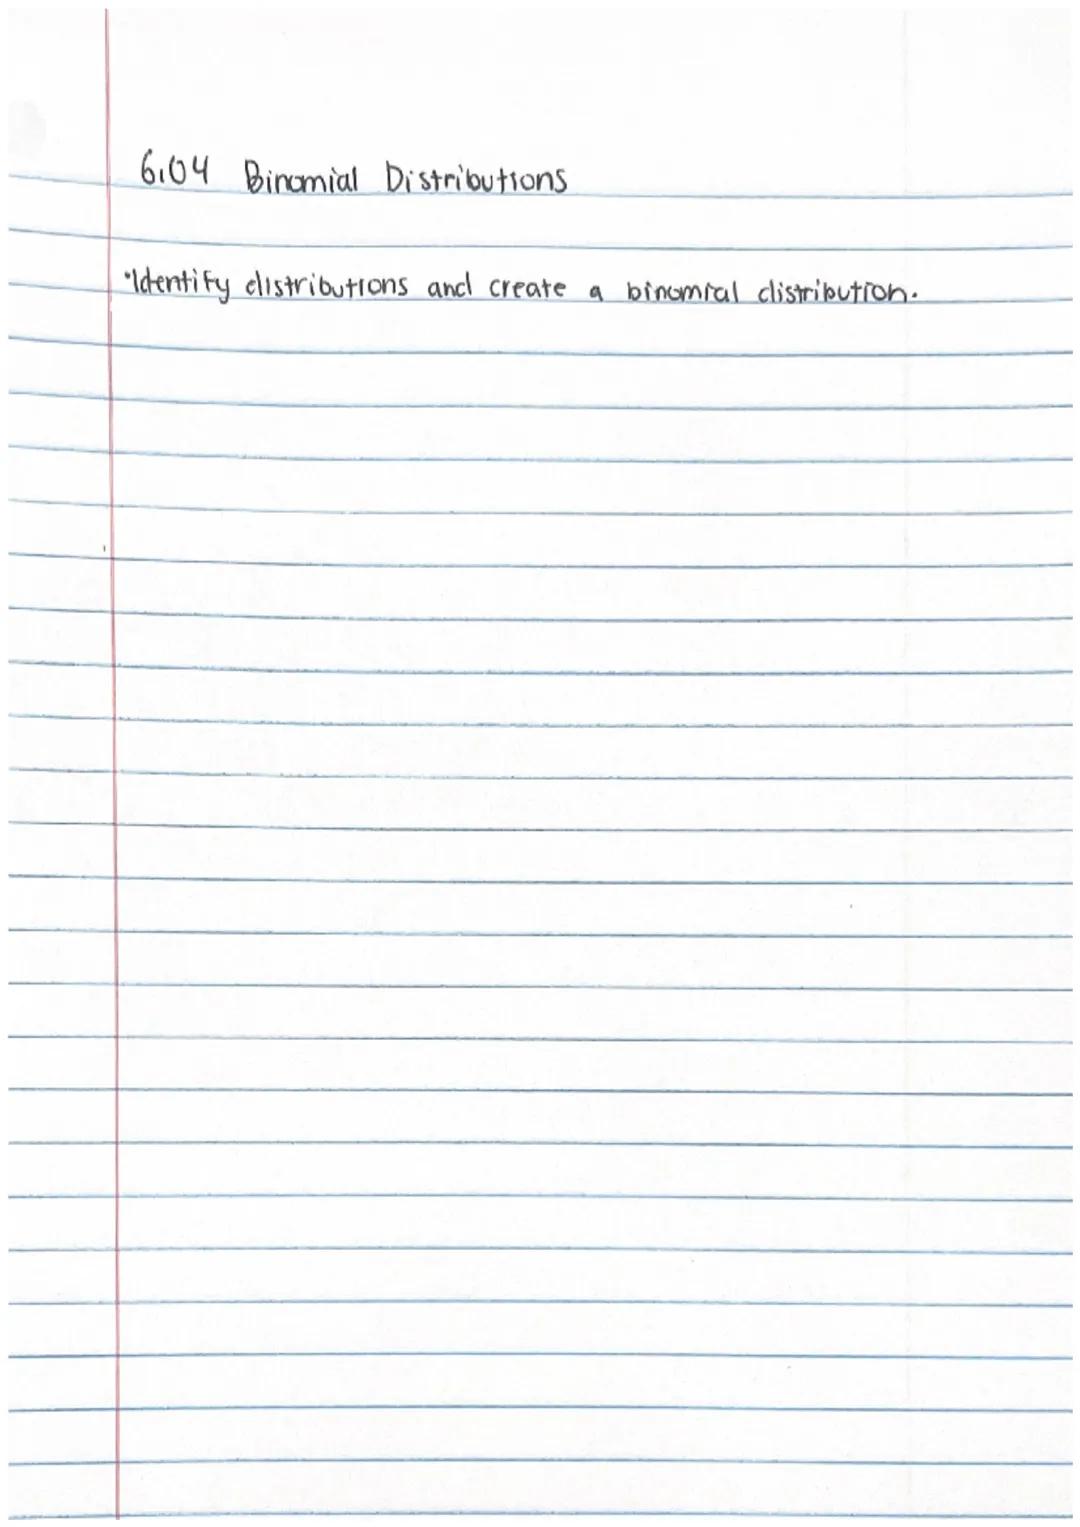 6.04 Binomial Distributions
•Identify distributions and create a binomial distribution.